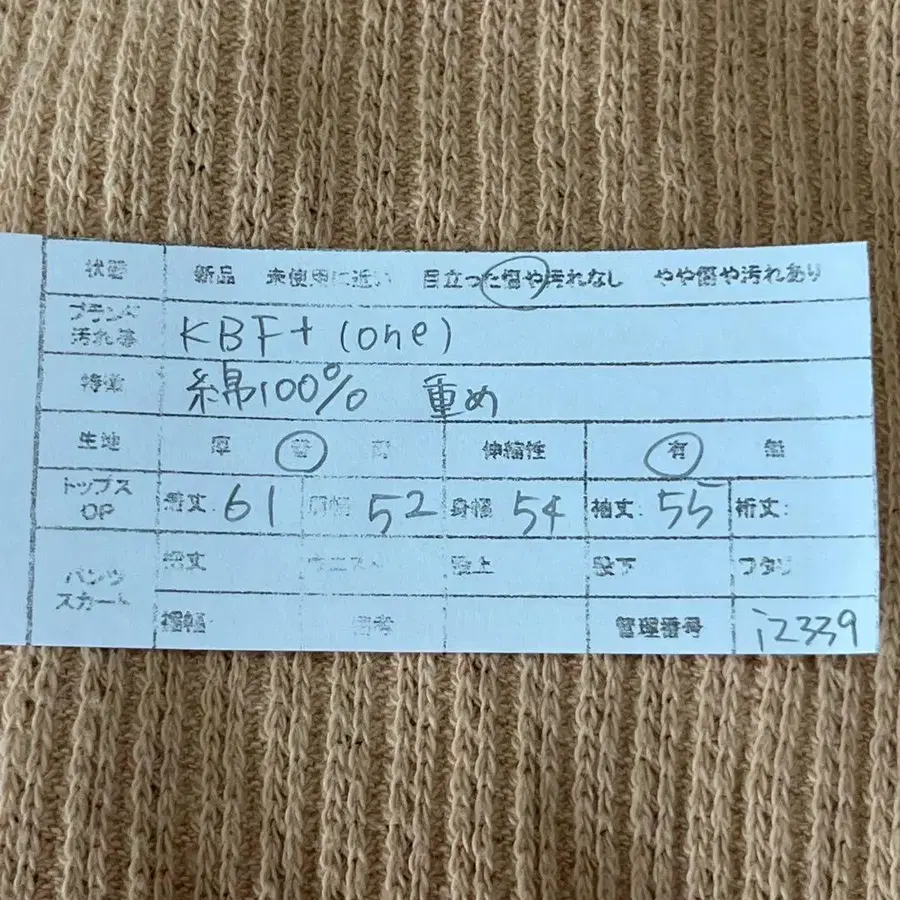 状態 新品 未使用に近い 目立った傷や汚れなし やや傷や汚れあり
ブランド 汚れ等 KBF+(one)
特徴 綿100% 重め
生地 厚 普 伸縮性 有 無
トップス OP 着丈:61 肩幅 52 身幅 54 袖丈:55 裄丈:
パンツ スカート 総丈 ウエスト 股上 股下 ワタリ
裾幅 備考 管理番号 i2339